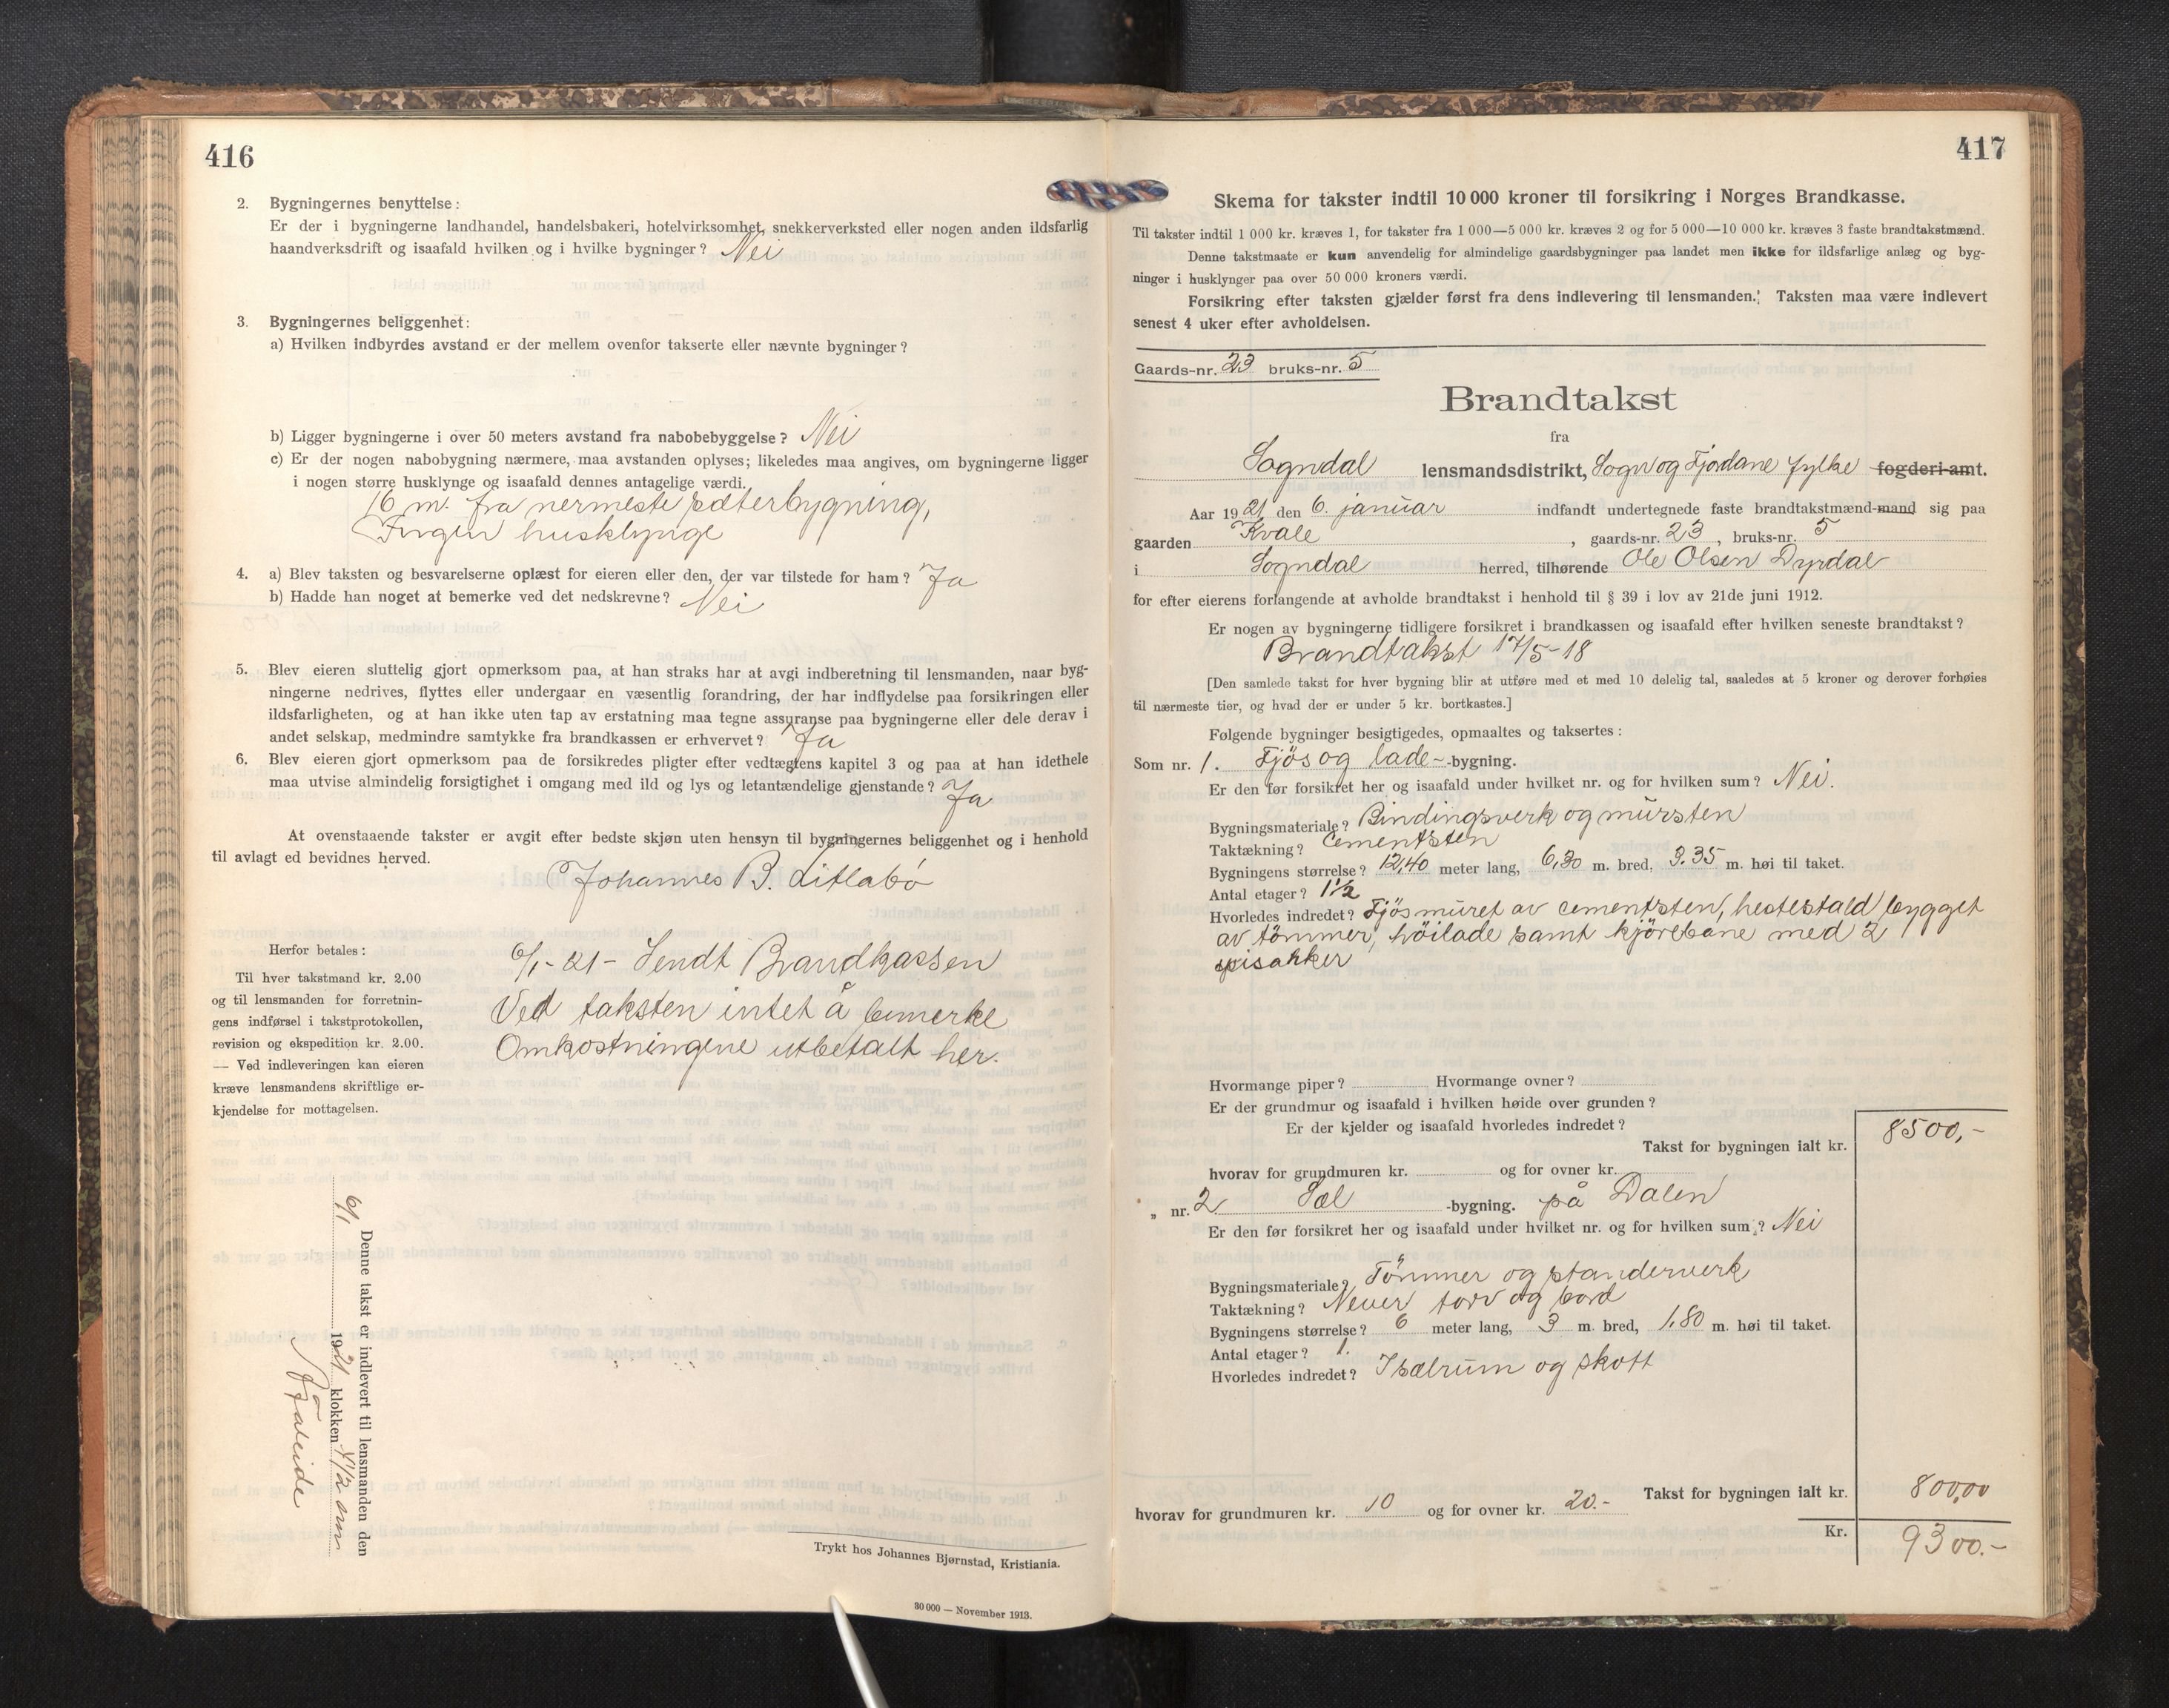 416
2. Bygningernes benyttelse:
Er der i bygningerne landhandel, handelsbakeri, hotelvirksomhet, snekkerverksted eller nogen anden ildsfarlig
haandverksdrift og isaafald hvilken og i hvilke bygninger? Nei
3. Bygningernes beliggenhet:
a) Hvilken indbyrdes avstand er der mellem ovenfor takserte eller nævnte bygninger?
b) Ligger bygningerne i over 50 meters avstand fra nabobebyggelse? Nei
c) Er der nogen nabobygning nærmere, maa avstanden oplyses; likeledes maa angives, om bygningerne ligger
i nogen større husklynge og isaafald dennes antagelige værdi.
16 m. fra nermeste sæterbygning,
Ingen husklynge
4. a) Blev taksten og besvarelserne oplæst for eieren eller den, der var tilstede for ham? Ja
b) Hadde han noget at bemerke ved det nedskrevne? Nei
5. Blev eieren sluttelig gjort opmerksom paa, at han straks har at avgi indberetning til lensmanden, naar byg-
ningerne nedrives, flyttes eller undergaar en væsentlig forandring, der har indflydelse paa forsikringen eller
ildsfarligheten, og at han ikke uten tap av erstatning maa tegne assuranse paa bygningerne eller dele derav i
andet selskap, medmindre samtykke fra brandkassen er erhvervet? Ja
6. Blev eieren gjort opmerksom paa de forsikredes pligter efter vedtægtens kapitel 3 og paa at han idethele
maa utvise almindelig forsigtighet i omgang med ild og lys og letantændelige gjenstande? Ja
At ovenstaaende takster er avgit efter bedste skjøn uten hensyn til bygningernes beliggenhet og i henhold
til avlagt ed bevidnes herved.
Johannes B. Litlabö
Herfor betales:
Til hver takstmand kr. 2.00
og til lensmanden for forretnin-
gens indførsel i takstprotokollen,
revision og ekspedition kr. 2.00.
— Ved indleveringen kan eieren
kræve lensmandens skriftlige er-
kjendelse for mottagelsen.
6/1-21- Sendt Brandkassen
Ved taksten intet å bemerke
Omkostningene utbetalt her.
Denne takst er indlevert til lensmanden den
6/1 1921 klokken 11/2 em
Trykt hos Johannes Bjørnstad, Kristiania.
30 000 — November 1913.
417
Skema for takster indtil 10 000 kroner til forsikring i Norges Brandkasse.
Til takster indtil 1 000 kr. kræves 1, for takster fra 1 000—5 000 kr. kræves 2 og for 5 000—10 000 kr. kræves 3 faste brandtakstmænd.
Denne takstmaate er kun anvendelig for almindelige gaardsbygninger paa landet men ikke for ildsfarlige anlæg og byg-
ninger i husklynger paa over 50 000 kroners værdi.
Forsikring efter taksten gjælder først fra dens indlevering til lensmanden. Taksten maa være indlevert
senest 4 uker efter avholdelsen.
Gaards-nr. 23 bruks-nr. 5
Brandtakst
fra
Sogndal lensmandsdistrikt, Sogn og Fjordane fylke fogderi-amt.
Aar 1921 den 6. januar indfandt undertegnede faste brandtakstmænd-mand sig paa
gaarden Kvale, gaards-nr. 23, bruks-nr. 5
i Sogndal herred, tilhørende Ole Olsen Dyrdal
for efter eierens forlangende at avholde brandtakst i henhold til § 39 i lov av 21de juni 1912.
Er nogen av bygningerne tidligere forsikret i brandkassen og isaafald efter hvilken seneste brandtakst?
Brandtakst 17/5-18
[Den samlede takst for hver bygning blir at utføre med et med 10 delelig tal, saaledes at 5 kroner og derover forhøies
til nærmeste tier, og hvad der er under 5 kr. bortkastes.]
Følgende bygninger besigtigedes, opmaaltes og taksertes:
Som nr. 1. Fjös og lade- -bygning.
Er den før forsikret her og isaafald under hvilket nr. og for hvilken sum? Nei.
Bygningsmateriale? Bindingsverk og mursten
Taktækning? Cementsten
Bygningens størrelse? 12,40 meter lang, 6,30 m. bred, 3.35 m. høi til taket.
Antal etager? 1½
Hvorledes indredet? Fjös muret av cementsten, hestestald bygget
av tömmer, höilade samt kjörebane med 2
Hvormange piper? Hvormange ovner?
Er der grundmur og isaafald i hvilken høide over grunden?
Er der kjelder og isaafald hvorledes indredet?
Takst for bygningen ialt kr. 8500,-
hvorav for grundmuren kr. og for ovner kr.
„ nr. 2 Sel -bygning. på Dalen
Er den før forsikret her og isaafald under hvilket nr. og for hvilken sum? Nei
Bygningsmateriale? Tömmer og standerverk
Taktækning? Never torv og bord
Bygningens størrelse? 6 meter lang, 3 m. bred, 1,80 m. høi til taket.
Antal etager? 1.
Hvorledes indredet? 1 selrum og skott
Takst for bygningen ialt kr. 800,00
hvorav for grundmuren kr. 10 og for ovner kr. 20.-
Kr. 9300.-